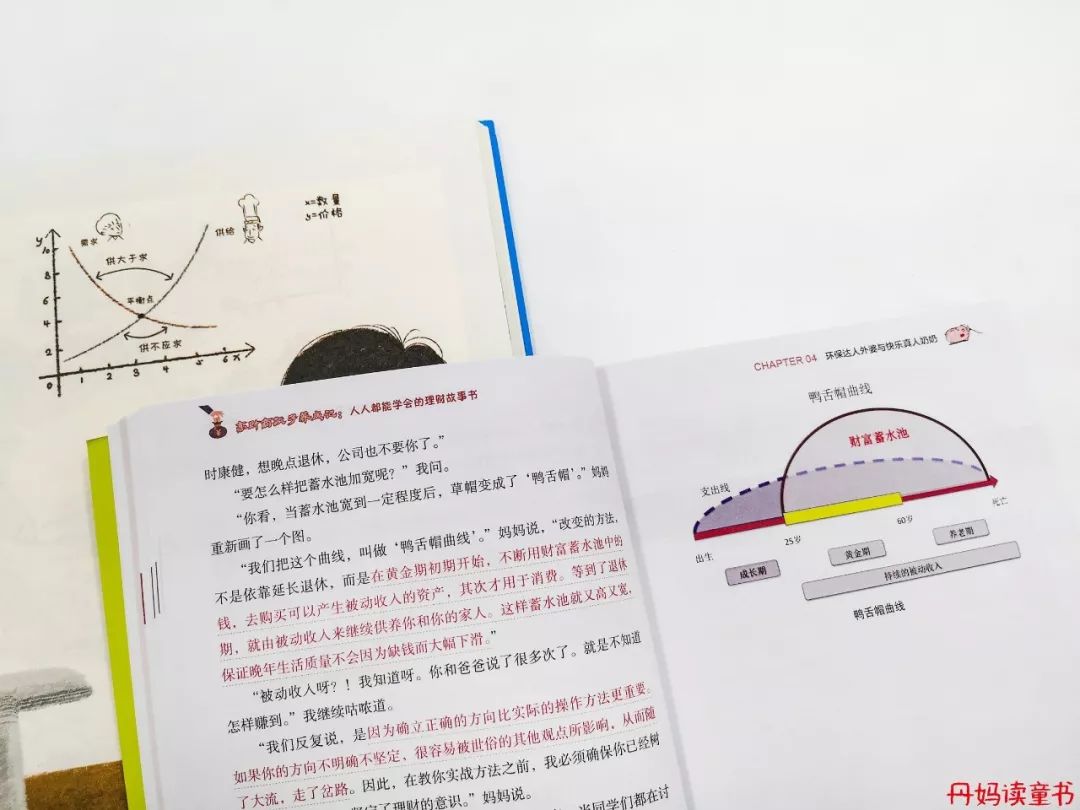 x=数量
y=价格
y
需求
供给
供大于求
平衡点
供不应求
10
8
6
4
2
0
1
2
3
4
5
6
x
人人都能学会的理财故事书
时康健，想晚点退休，公司也不要你了。”
“要怎么样把蓄水池加宽呢？”我问。
“你看，当蓄水池宽到一定程度后，草帽变成了‘鸭舌帽’。”妈妈
重新画了一个图。
“我们把这个曲线，叫做‘鸭舌帽曲线’。”妈妈说，“改变的方法，
不是依靠延长退休，而是在黄金期初期开始，不断用财富蓄水池中的
钱，去购买可以产生被动收入的资产，其次才用于消费。等到了退休
期，就由被动收入来继续供养你和你的家人。这样蓄水池就又高又宽，
保证晚年生活质量不会因为缺钱而大幅下滑。”
“被动收入呀？！我知道呀。你和爸爸说了很多次了。就是不知道
怎样赚到。”我继续咕哝道。
“我们反复说，是因为确立正确的方向比实际的操作方法更重要。
如果你的方向不明确不坚定、很容易被世俗的其他观点所影响，从而随
了大流，走了岔路。因此，在教你实战方法之前，我必须确保你已经树
了理财的意识。”妈妈说。
当同学们都在讨
CHAPTER 04 环保达人外婆与快乐真人奶奶
鸭舌帽曲线
财富蓄水池
支出线
出生
25岁
60岁
死亡
成长期
黄金期
养老期
持续的被动收入
鸭舌帽曲线
丹妈读童书